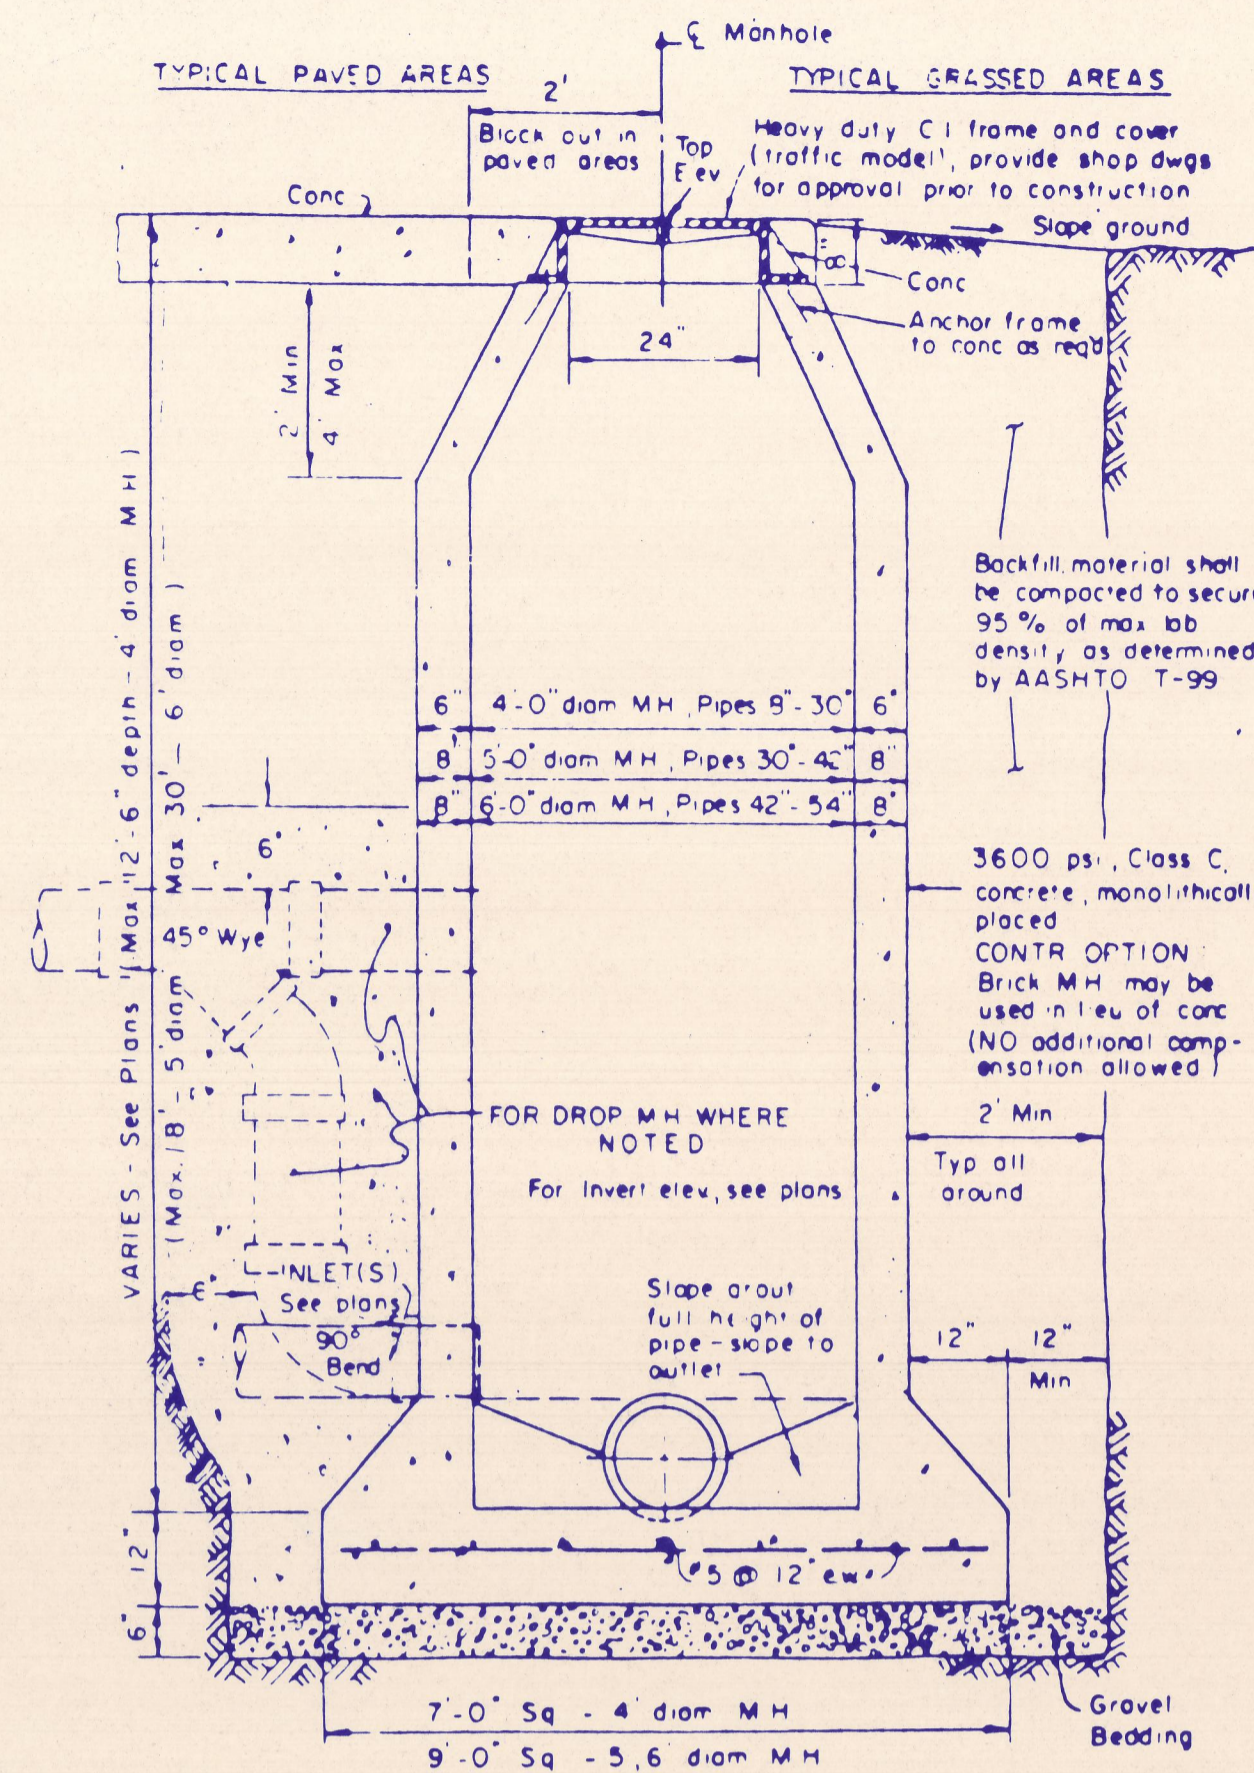 ℄ Manhole
TYPICAL PAVED AREAS
TYPICAL GRASSED AREAS
2'
Block out in
paved areas
Top
Elev
Heavy duty C I frame and cover
(traffic model), provide shop dwgs
for approval prior to construction
Conc
Slope ground
8"
Conc
Anchor frame
to conc as req'd
24"
2' Min
4' Max
VARIES - See Plans (Max 12'-6" depth - 4' diam M H)
(Max. 18' - 5' diam Max 30' - 6' diam)
Backfill material shall
be compacted to secure
95 % of max lab
density as determined
by AASHTO T-99
6" 4'-0" diam M H, Pipes 8"-30" 6"
8" 5'-0" diam M H, Pipes 30"-42" 8"
8" 6'-0" diam M H, Pipes 42"-54" 8"
6"
45° Wye
3600 psi, Class C,
concrete, monolithicall
placed
CONTR OPTION
Brick M H may be
used in lieu of conc
(NO additional comp-
ensation allowed)
FOR DROP M H WHERE
NOTED
For Invert elev, see plans
2' Min
Typ all
around
INLET(S)
See plans
6"
90°
Bend
Slope grout
full height of
pipe - slope to
outlet
12" 12"
Min
12"
6"
#5 @ 12" ew.
7'-0" Sq - 4' diam M H
9'-0" Sq - 5, 6' diam M H
Gravel
Bedding